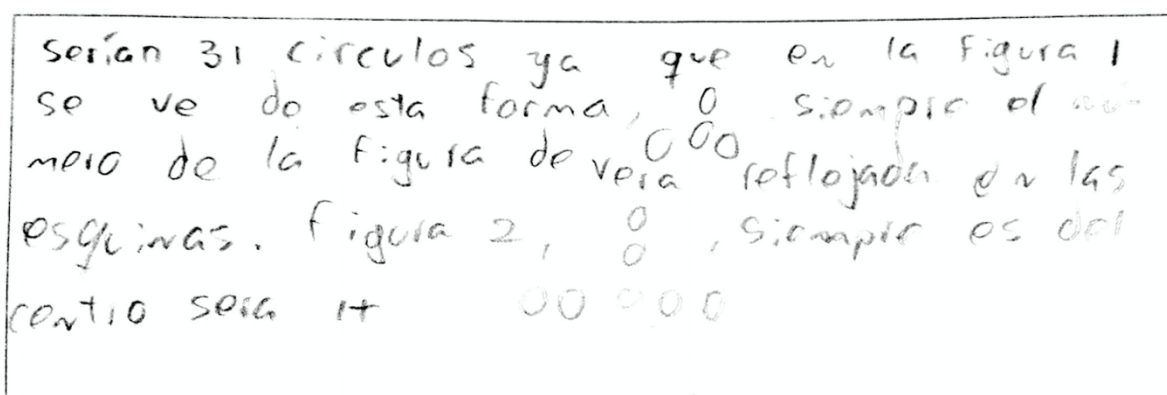 serían 31 circulos ya que en la Figura 1
se ve de esta forma, siempre el nú-
mero de la figura de vera reflejada en las
esquinas. figura 2, , siempre es del
centro sera 1+